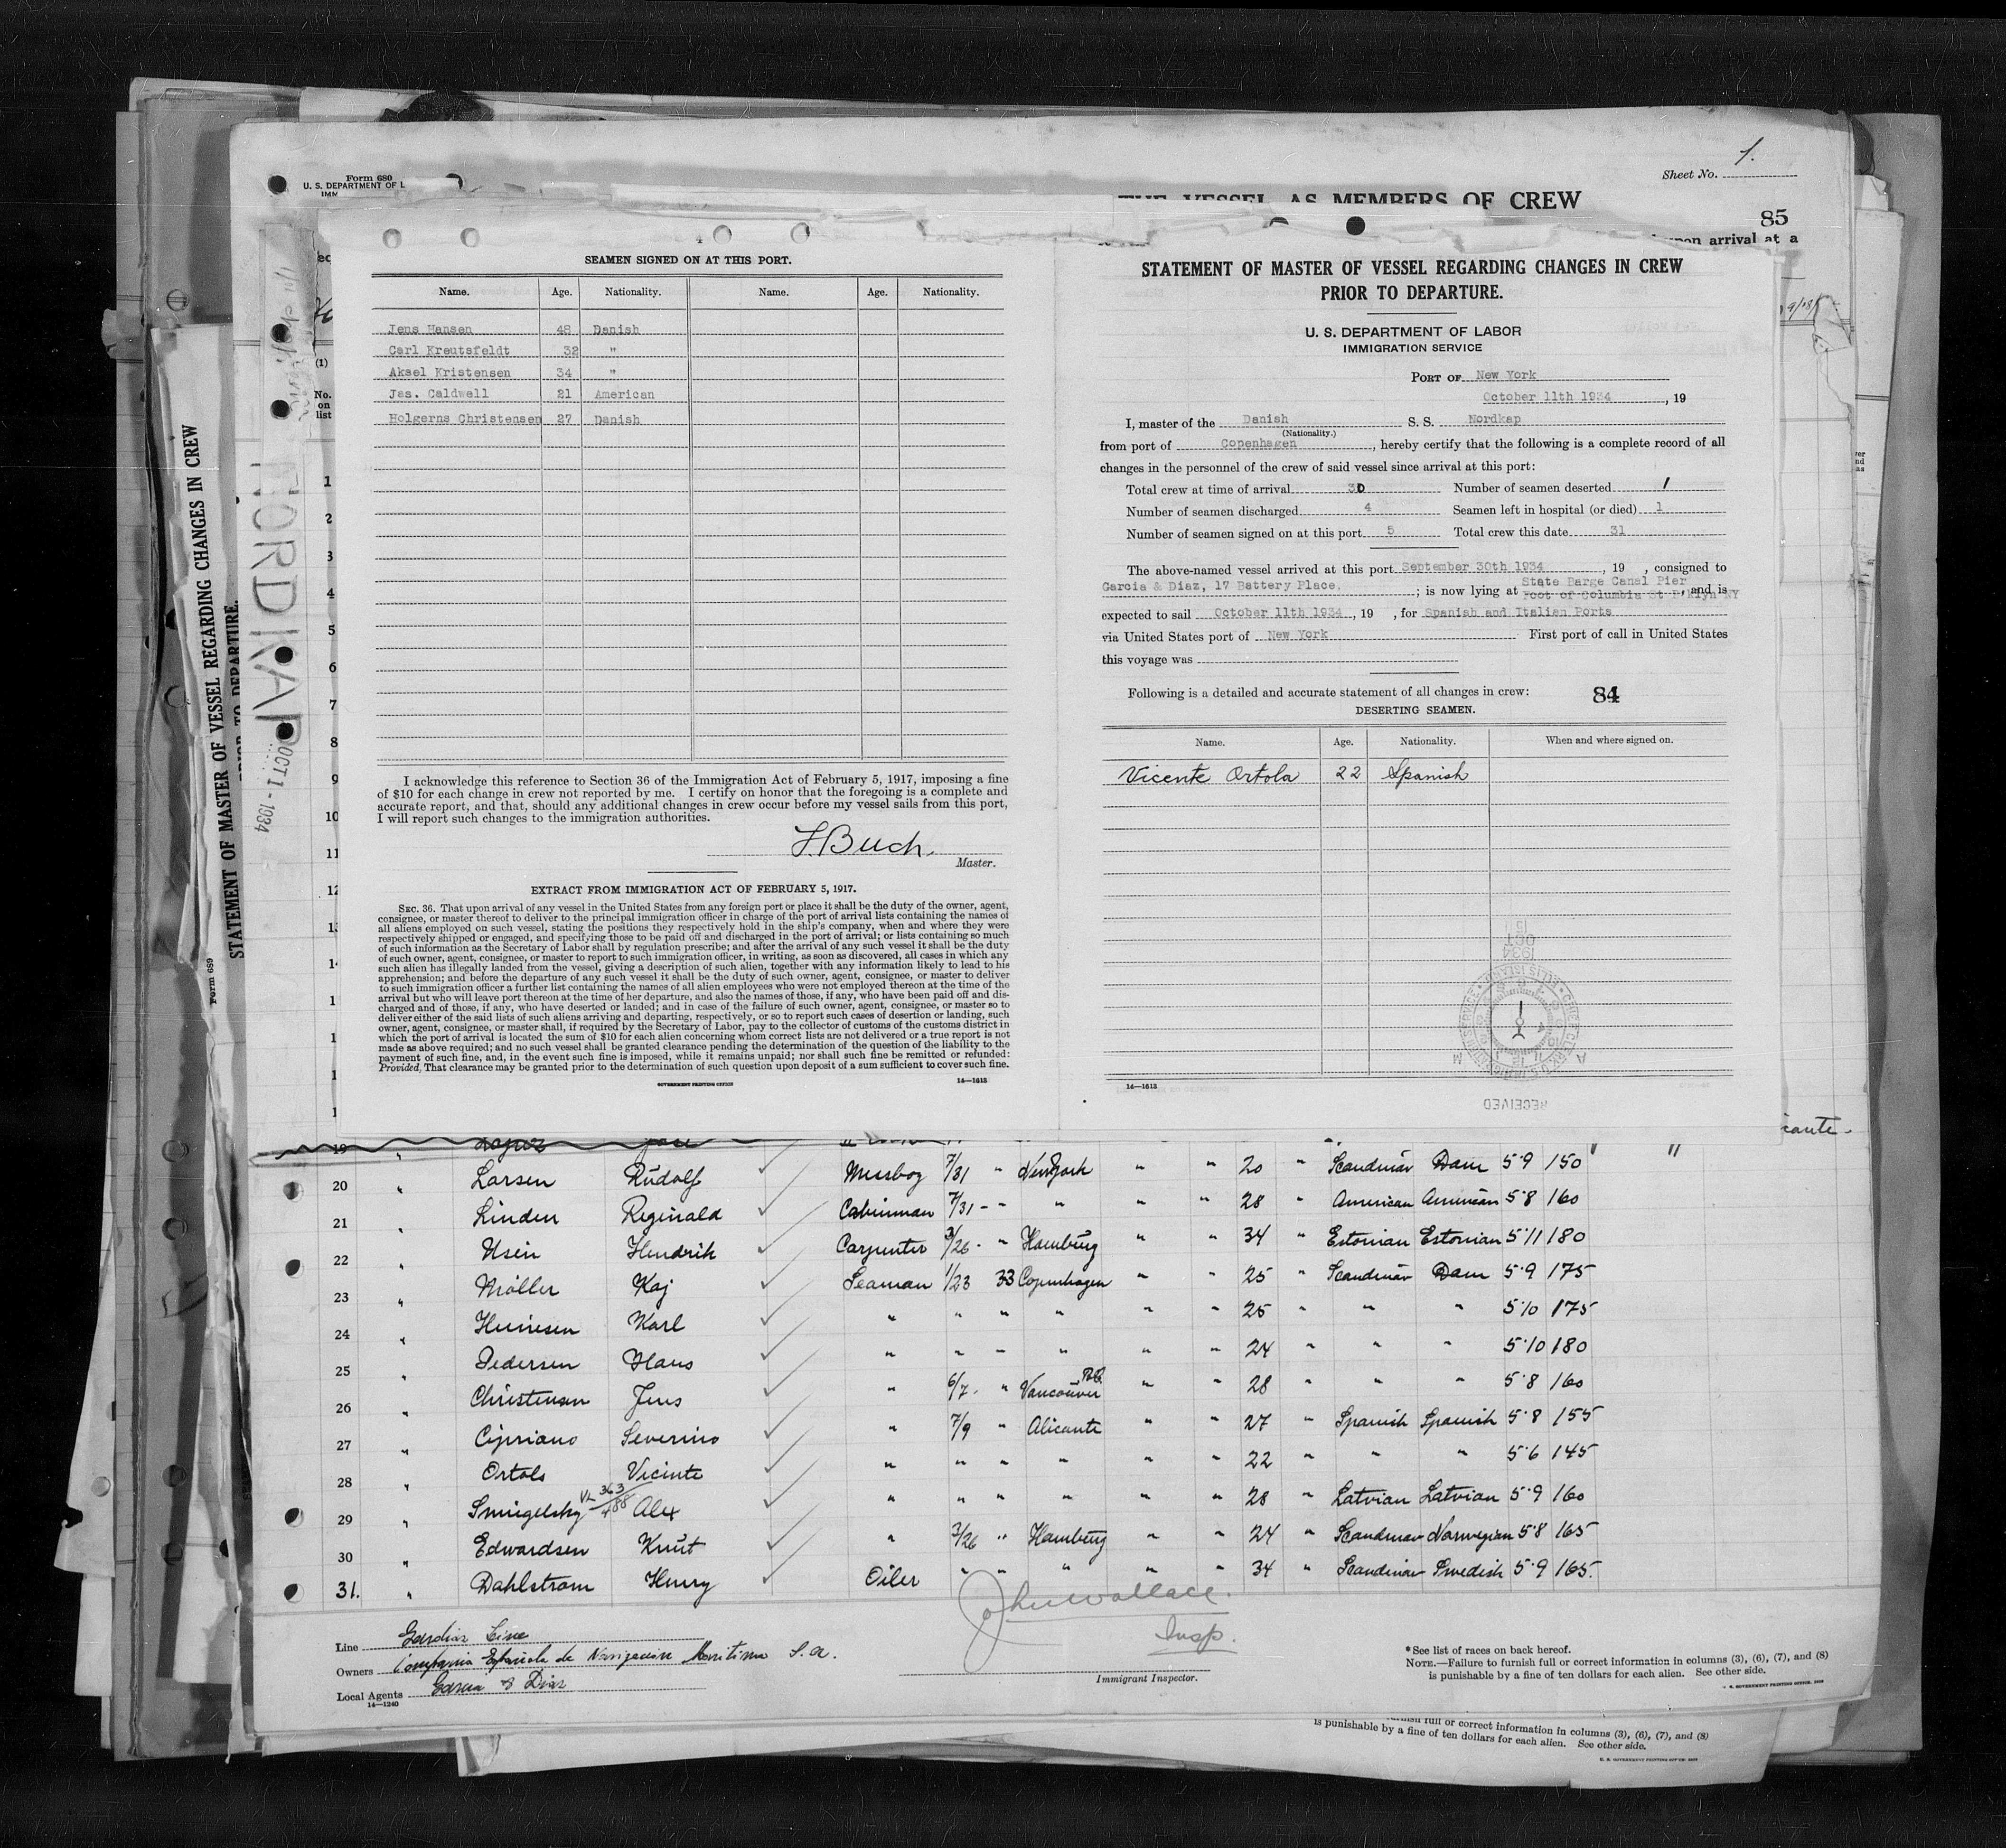 Form 680
U. S. DEPARTMENT OF L
IMM
1.
Sheet No.
THE VESSEL AS MEMBERS OF CREW
85
upon arrival at a
STATEMENT OF MASTER OF VESSEL REGARDING CHANGES IN CREW
PRIOR TO DEPARTURE.
Form 689
NORDKAP
OCT 1 - 1934
(1)
No.
on
list
1
2
3
4
5
6
7
8
9
10
11
12
4
SEAMEN SIGNED ON AT THIS PORT.
Name. Age. Nationality. Name. Age. Nationality.
Jens Hansen 48 Danish
Carl Kreutsfeldt 32 "
Aksel Kristensen 34 "
Jas. Caldwell 21 American
Holgerns Christensen 27 Danish
I acknowledge this reference to Section 36 of the Immigration Act of February 5, 1917, imposing a fine
of $10 for each change in crew not reported by me. I certify on honor that the foregoing is a complete and
accurate report, and that, should any additional changes in crew occur before my vessel sails from this port,
I will report such changes to the immigration authorities.
J. Buch.
Master.
EXTRACT FROM IMMIGRATION ACT OF FEBRUARY 5, 1917.
SEC. 36. That upon arrival of any vessel in the United States from any foreign port or place it shall be the duty of the owner, agent,
consignee, or master thereof to deliver to the principal immigration officer in charge of the port of arrival lists containing the names of
all aliens employed on such vessel, stating the positions they respectively hold in the ship's company, when and where they were
respectively shipped or engaged, and specifying those to be paid off and discharged in the port of arrival; or lists containing so much
of such information as the Secretary of Labor shall by regulation prescribe; and after the arrival of any such vessel it shall be the duty
of such owner, agent, consignee, or master to report to such immigration officer, in writing, as soon as discovered, all cases in which any
such alien has illegally landed from the vessel, giving a description of such alien, together with any information likely to lead to his
apprehension; and before the departure of any such vessel it shall be the duty of such owner, agent, consignee, or master to deliver
to such immigration officer a further list containing the names of all alien employees who were not employed thereon at the time of the
arrival but who will leave port thereon at the time of her departure, and also the names of those, if any, who have been paid off and dis-
charged and of those, if any, who have deserted or landed; and in case of the failure of such owner, agent, consignee, or master so to
deliver either of the said lists of such aliens arriving and departing, respectively, or so to report such cases of desertion or landing, such
owner, agent, consignee, or master shall, if required by the Secretary of Labor, pay to the collector of customs of the customs district in
which the port of arrival is located the sum of $10 for each alien concerning whom correct lists are not delivered or a true report is not
made as above required; and no such vessel shall be granted clearance pending the determination of the question of the liability to the
payment of such fine, and, in the event such fine is imposed, while it remains unpaid; nor shall such fine be remitted or refunded:
Provided, That clearance may be granted prior to the determination of such question upon deposit of a sum sufficient to cover such fine.
GOVERNMENT PRINTING OFFICE 14—1613
STATEMENT OF MASTER OF VESSEL REGARDING CHANGES IN CREW
PRIOR TO DEPARTURE.
U. S. DEPARTMENT OF LABOR
IMMIGRATION SERVICE
PORT OF New York
October 11th 1934, 19
I, master of the Danish S. S. Nordkap
(Nationality.)
from port of Copenhagen, hereby certify that the following is a complete record of all
changes in the personnel of the crew of said vessel since arrival at this port:
Total crew at time of arrival 30 Number of seamen deserted 1
Number of seamen discharged 4 Seamen left in hospital (or died) 1
Number of seamen signed on at this port 5 Total crew this date 31
The above-named vessel arrived at this port September 30th 1934, 19 , consigned to
Garcia & Diaz, 17 Battery Place. ; is now lying at State Barge Canal Pier
Foot of Columbia St B'klyn NY, and is
expected to sail October 11th 1934, 19 , for Spanish and Italien Ports
via United States port of New York First port of call in United States
this voyage was
Following is a detailed and accurate statement of all changes in crew: 84
DESERTING SEAMEN.
Name. Age. Nationality. When and where signed on.
Vicente Ortola 22 Spanish
OCT 15 1934
RECEIVED
14—1613
icante.
19 " Lopez Jose
20 " Larsen Rudolf Messboy 7/31 " New York " " 20 " Scandinav Dane 5'9 150 " "
21 " Linden Reginald Cabinman 7/31 - " " " " 28 " American American 5'8 160
22 " Usin Hendrik Carpenter 3/26 - " Hamburg " " 34 " Estonian Estonian 5'11 180
23 " Møller Kaj Seaman 1/23 33 Copenhagen " " 25 " Scandinav Dane 5'9 175
24 " Heinesen Karl " " " " " " 25 " " " 5'10 175
25 " Pedersen Hans " " " " " " 24 " " " 5'10 180
26 " Christensen Jens " 6/7 - " Vancouver B.C. " " 28 " " " 5'8 160
27 " Cipriano Severino " 7/9 " Alicante " " 27 " Spanish Spanish 5'8 155
28 " Ortols Vicinte " " " " " " 22 " " " 5'6 145
29 " Smigelsky VL 363/488 Alex " " " " " " 28 " Latvian Latvian 5'9 160
30 " Edwardsen Knut " 3/26 " Hamburg " " 24 " Scandinav Norwegian 5'8 165
31. " Dahlstrom Henry Oiler " " " " " 34 " Scandinav Swedish 5'9 165.
John Wallace.
Insp.
Immigrant Inspector.
Line Gardiaz Line
Owners Compania Española de Navigacion Maritima S. A.
Local Agents Garcia & Diaz
14—1240
*See list of races on back hereof.
NOTE.—Failure to furnish full or correct information in columns (3), (6), (7), and (8)
is punishable by a fine of ten dollars for each alien. See other side.
U. S. GOVERNMENT PRINTING OFFICE
furnish full or correct information in columns (3), (6), (7), and (8)
is punishable by a fine of ten dollars for each alien. See other side.
U. S. GOVERNMENT PRINTING OFFICE